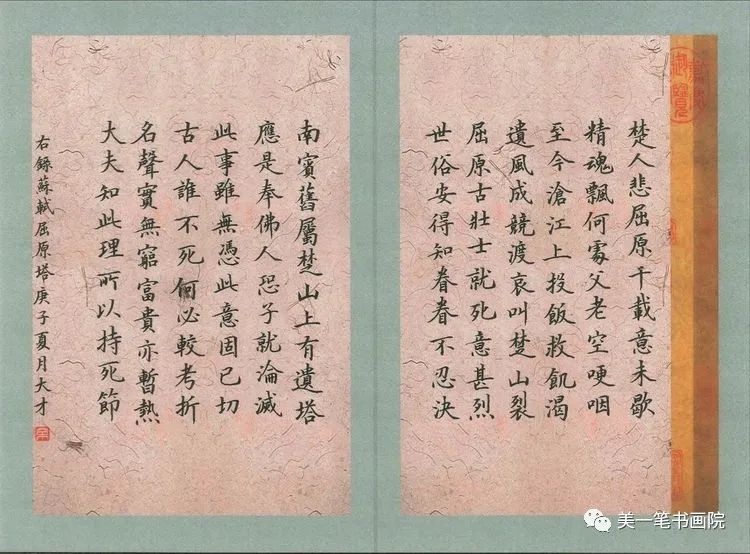 楚人悲屈原千載意未歇
精魂飄何處父老空哽咽
至今滄江上投飯救飢渴
遺風成競渡哀叫楚山裂
屈原古壯士就死意甚烈
世俗安得知眷眷不忍決
南賓舊屬楚山上有遺塔
應是奉佛人恐子就淪滅
此事雖無憑此意固已切
古人誰不死何必較考折
名聲實無窮富貴亦暫熱
大夫知此理所以持死節
右錄蘇軾屈原塔庚子夏月大才
美一笔书画院